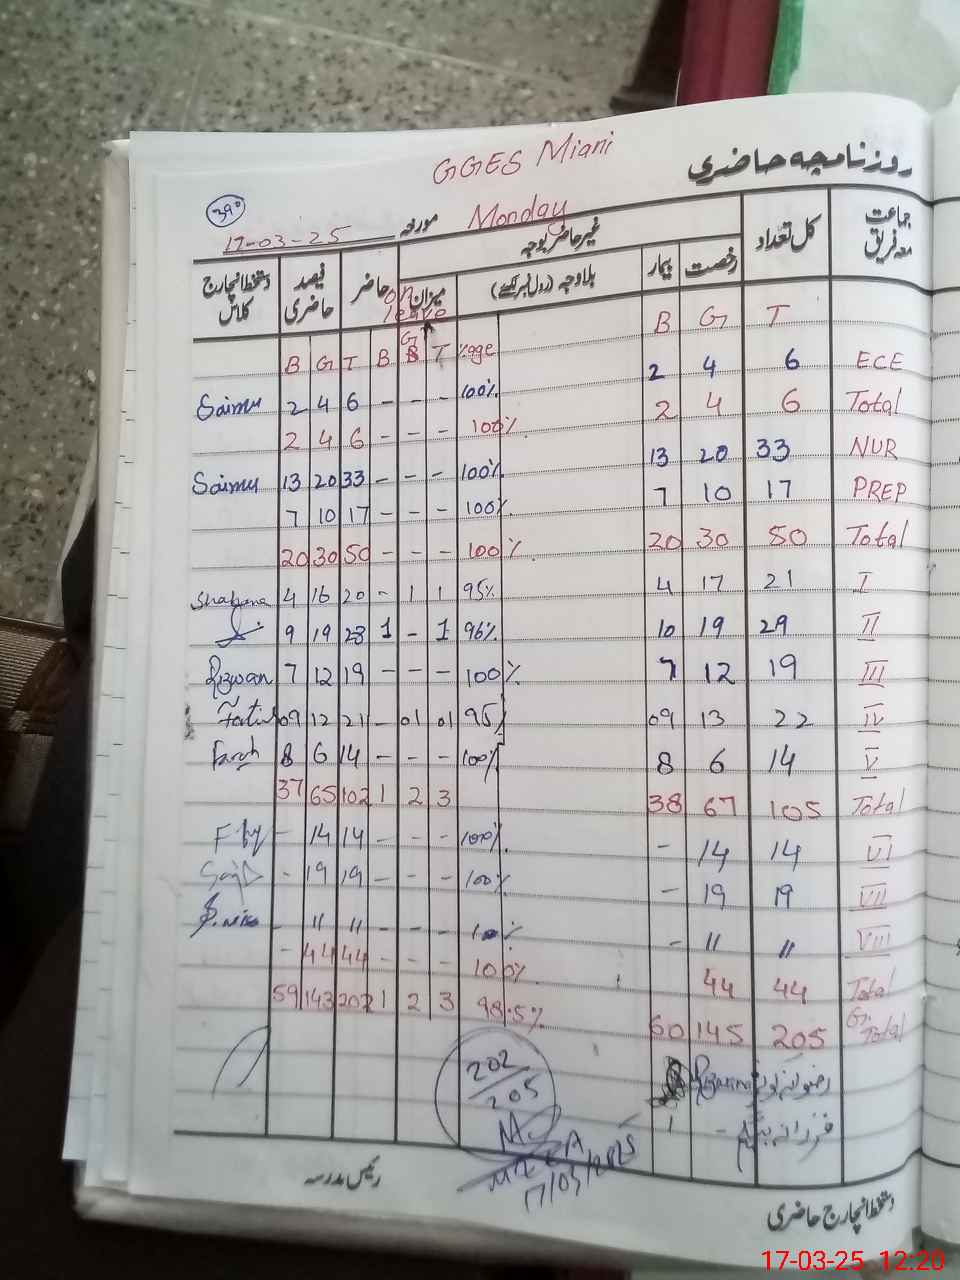 GGES Miani
روزنامچہ حاضری
390
17-03-25 مورخہ Monday
جماعت معہ فریق
کل تعداد
غیر حاضر بوجہ
رخصت
بیمار
بلاوجہ (رول نمبر لکھئے)
میزان
on leave
حاضر
فیصد حاضری
دستخط انچارج کلاس
B G T B G T %age B G T
Saima 2 4 6 - - - 100% 2 4 6 ECE
2 4 6 - - - 100% 2 4 6 Total
Saima 13 20 33 - - - 100% 13 20 33 NUR
7 10 17 - - - 100% 7 10 17 PREP
20 30 50 - - - 100% 20 30 50 Total
Shabana 4 16 20 - 1 1 95% 4 17 21 I
9 19 28 1 - 1 96% 10 19 29 II
Rizwan 7 12 19 - - - 100% 7 12 19 III
09 12 21 - 01 01 95% 09 13 22 IV
Farah 8 6 14 - - - 100% 8 6 14 V
37 65 102 1 2 3 38 67 105 Total
- 14 14 - - - 100% - 14 14 VI
- 19 19 - - - 100% - 19 19 VII
- 11 11 - - - 100% - 11 11 VIII
- 44 44 - - - 100% 44 44 Total
59 143 202 1 2 3 98.5% 60 145 205 G. Total
202
205
رضوانہ
1 - فرزانہ
17/03/2025
رئیس مدرسہ
دستخط انچارج حاضری
17-03-25 12:20